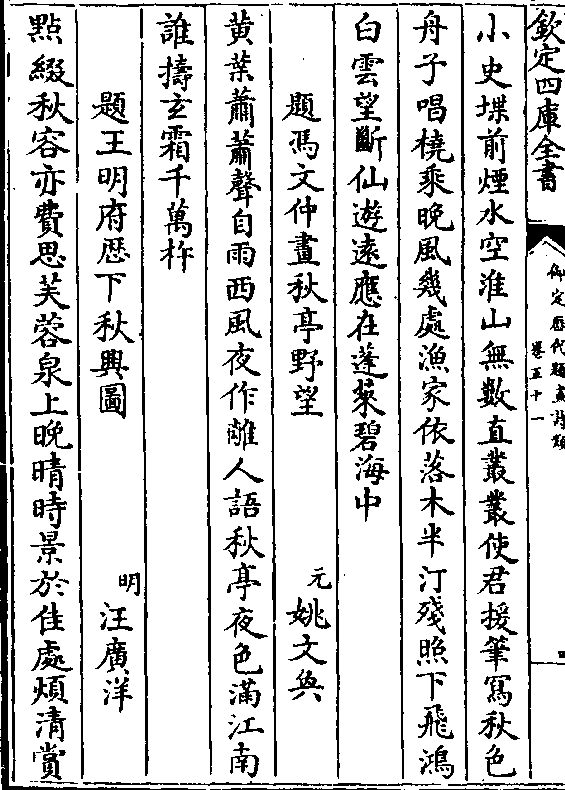 欽定四庫全書
御定歷代題畫詩類
卷五十一
四
小史堞前煙水空淮山無數直叢叢使君援筆寫秋色
舟子唱橈乘晚風幾處漁家依落木半汀殘照下飛鴻
白雲望斷仙遊遠應在蓬萊碧海中
題馮文仲畫秋亭野望 元 姚文奐
黄葉蕭蕭聲自雨西風夜作離人語秋亭夜色滿江南
誰擣玄霜千萬杵
題王明府歴下秋興圖 明 汪廣洋
點綴秋容亦費思芙蓉泉上晚晴時景於佳處煩清賞